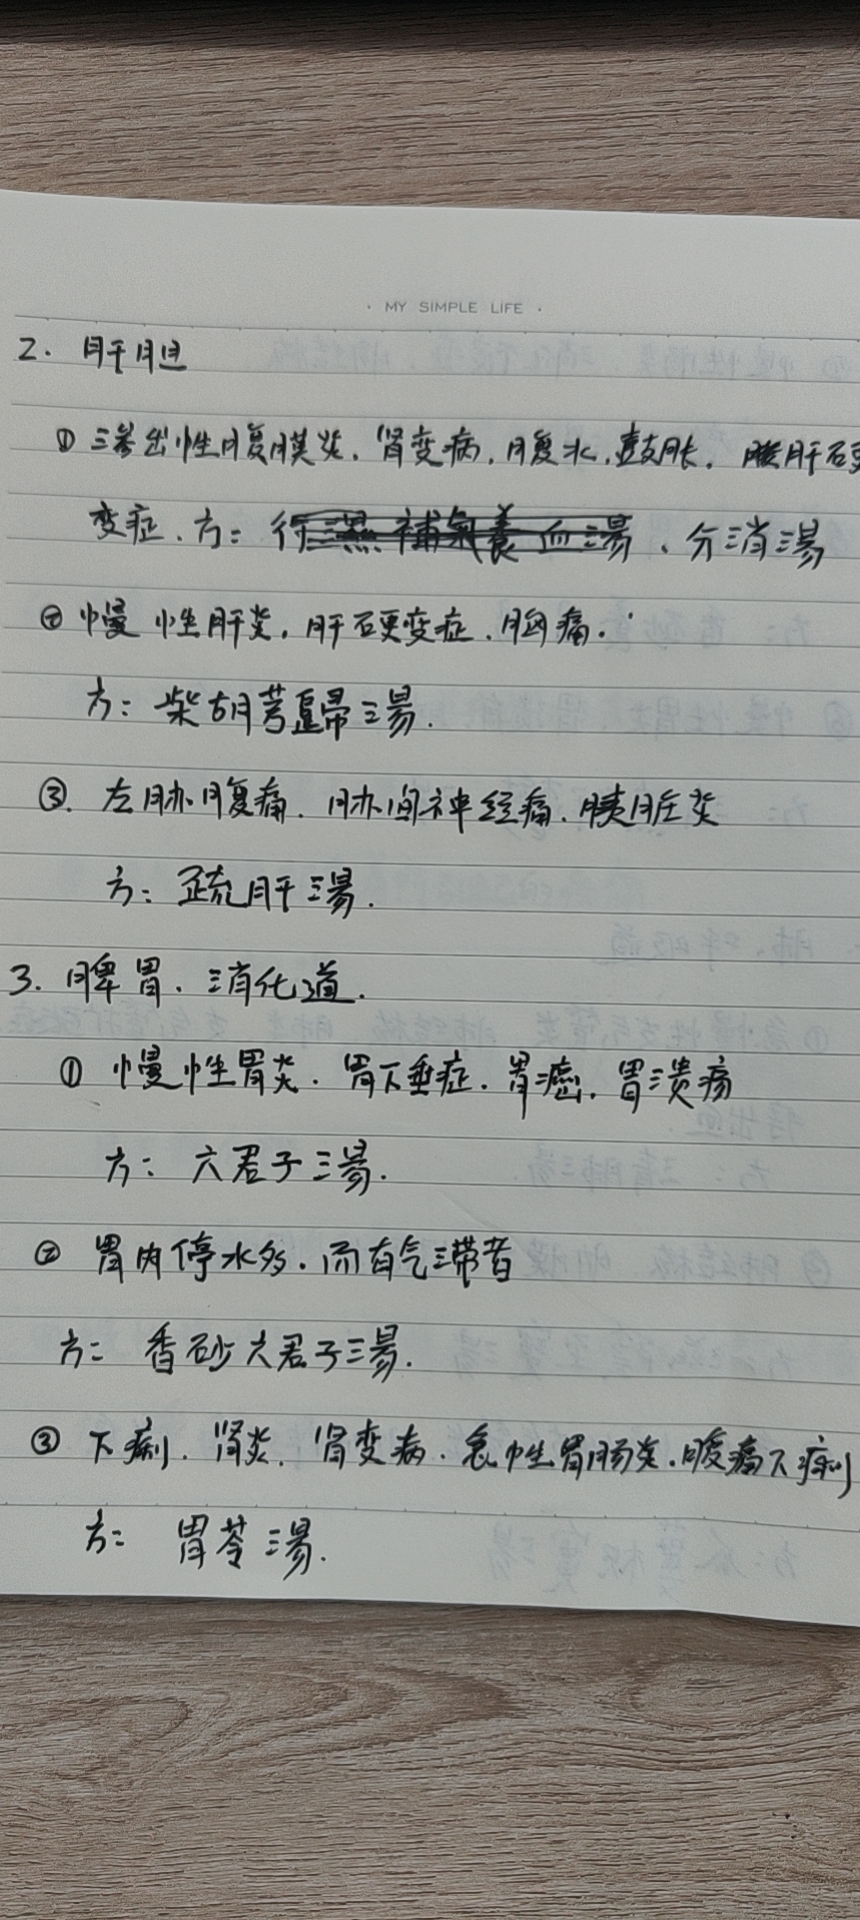 · MY SIMPLE LIFE ·
2. 肝胆
① 渗出性腹膜炎. 肾变病. 腹水. 鼓胀. 肝硬
变症. 方: 行湿補氣養血湯. 分消湯
② 慢性肝炎. 肝硬变症. 胸痛.
方: 柴胡芎歸湯.
③. 左胁腹痛. 肋间神经痛. 胰脏炎
方: 疏肝湯.
3. 脾胃. 消化道.
① 慢性胃炎. 胃下垂症. 胃癌. 胃溃疡
方: 六君子湯.
② 胃内停水多. 而有气滞者
方: 香砂六君子湯.
③ 下痢. 肾炎. 肾变病. 急性胃肠炎. 腹痛下痢
方: 胃苓湯.